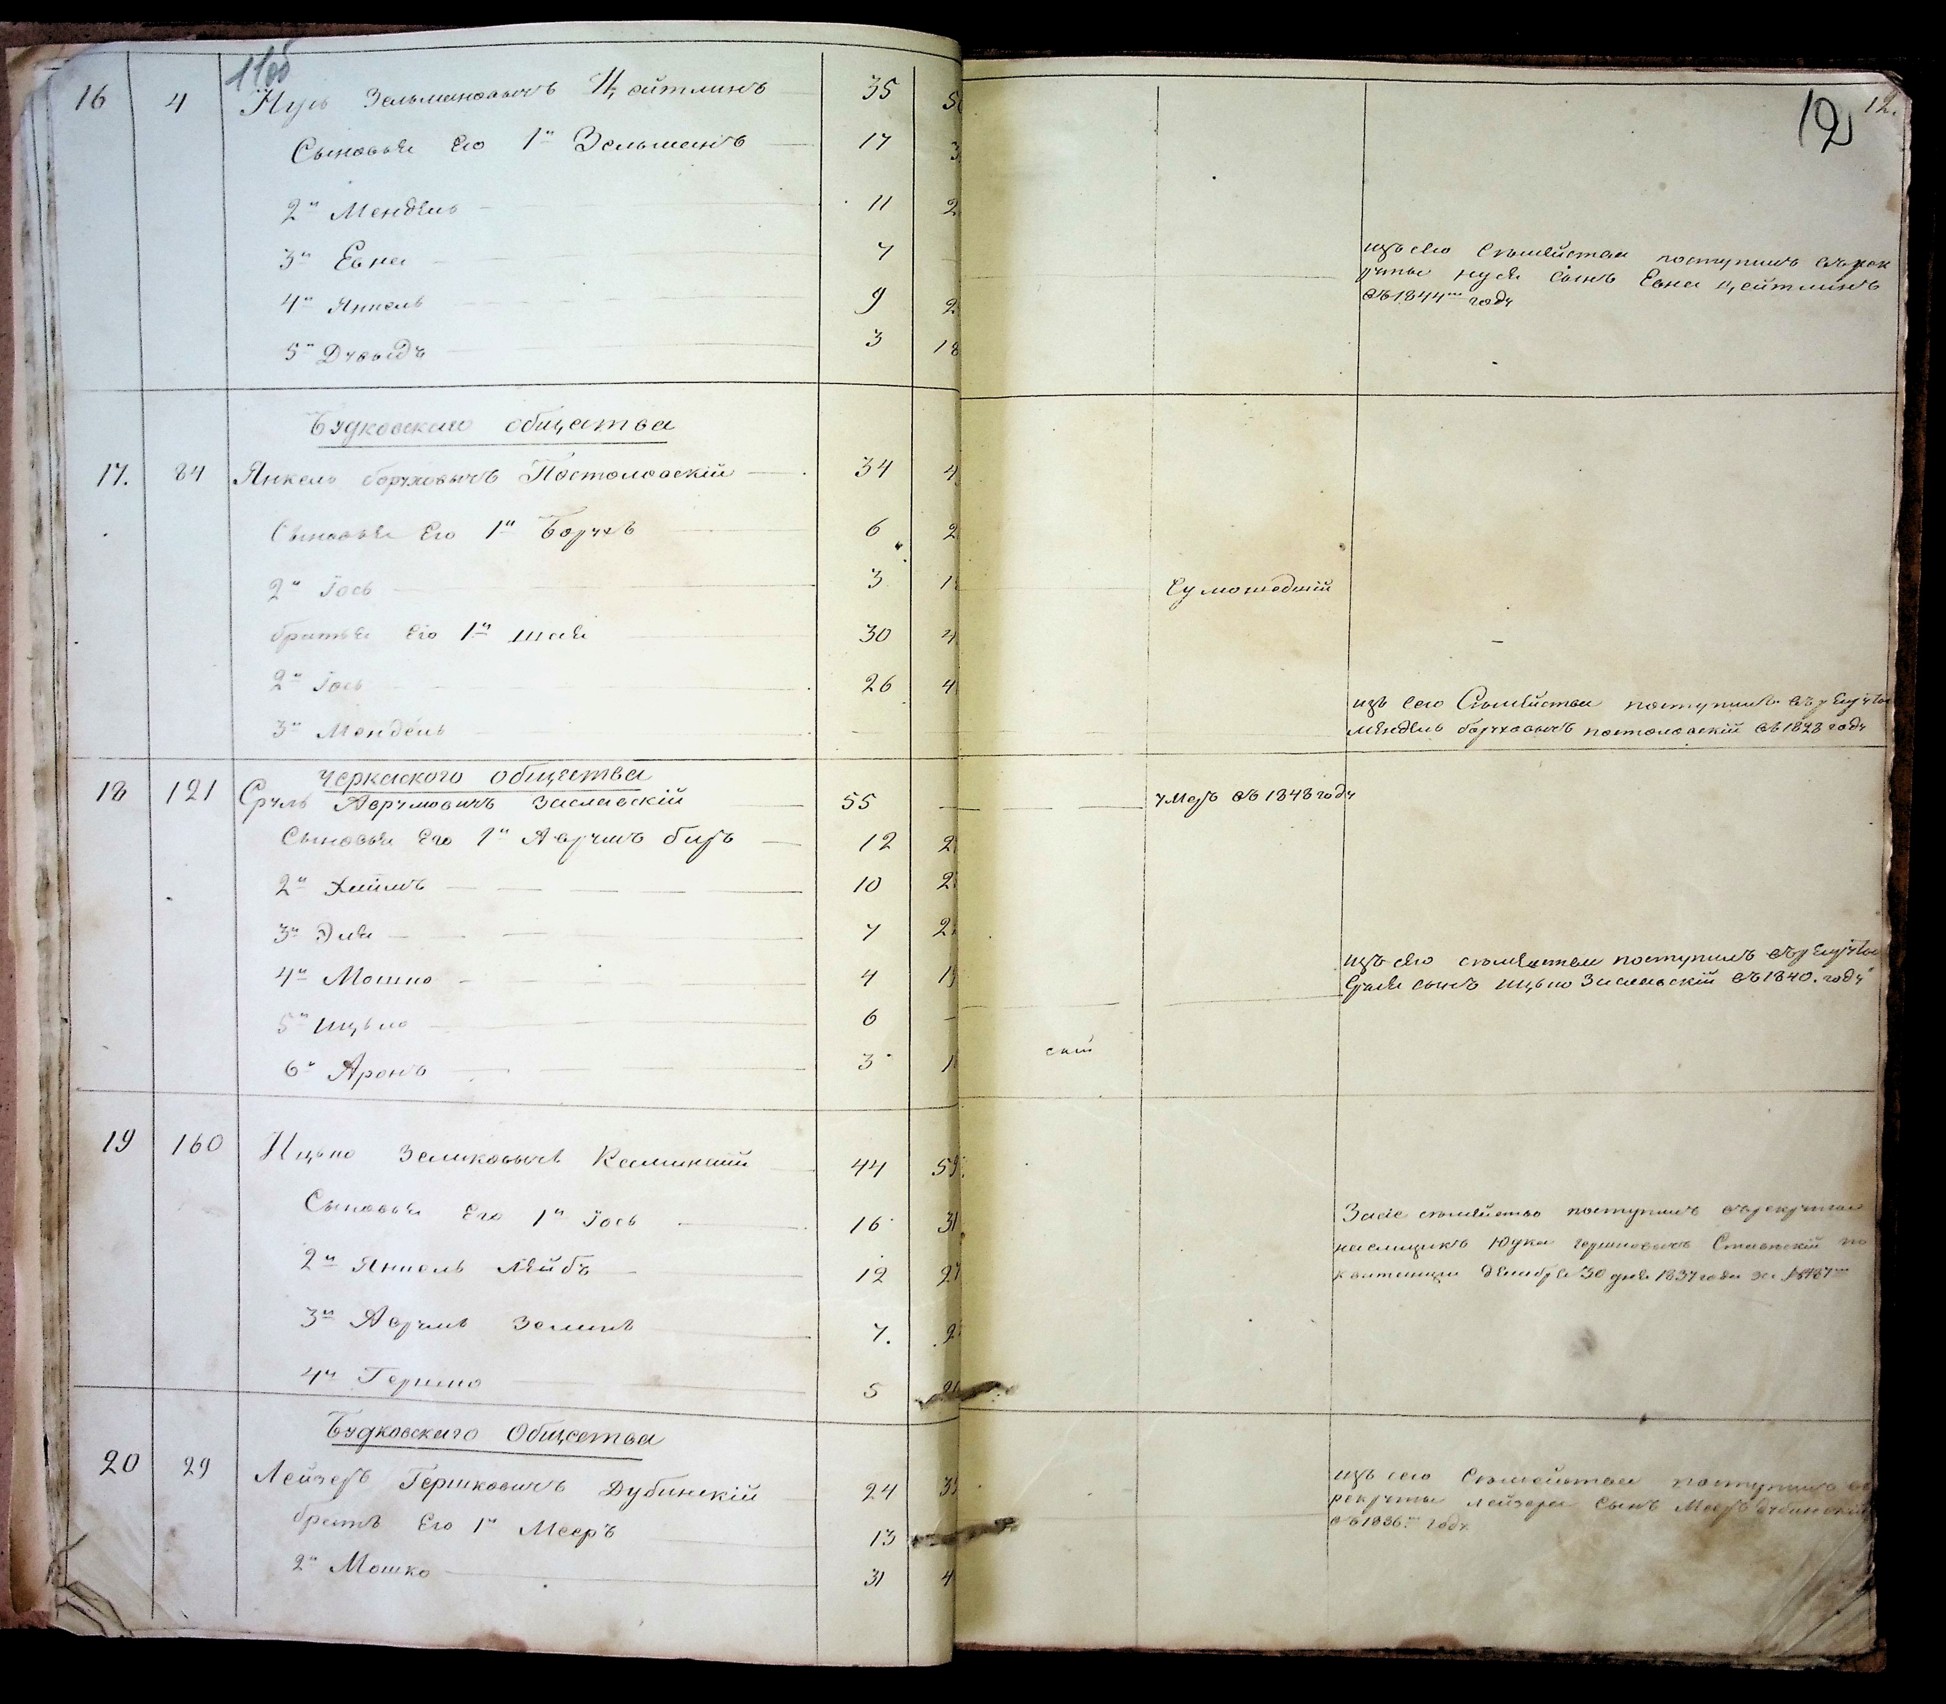 11об
16 4 Нусь Зельмановичъ Цейтлинъ 35
Сыновья Его 1й Зельманъ 17
2й Мендель 11
3й Евна 7
4й Янкель 9
5й Дувыдъ 3 18
Будковскаго общества
17. 84 Янкель борховичъ Постоловскій 34
Сыновья Его 1й Борухъ 6
2й Іось 3
братья Его 1й шая 30
2й Іось 26
3й Мендель
Черкаского общества
18 121 Сруль Аврумовичъ Заславскій 55
Сыновья Его 1й Аврумъ беръ 12
2й Хаимъ 10
3й Эля 7
4й Мошко 4
5й Ицько 6
6й Аронъ 3
19 160 Ицько Зеликовичъ Калинскій 44 59
Сыновья Его 1й Іось 16 31
2й Янкель Лейбъ 12 27
3й Аврумъ Зеликъ 7.
4й Гершко 5
Будковскаго Общества
20 29 Лейзеръ Гершковичъ Дубинскій 24
братъ Его 1й Мееръ 13
2й Мошко 31
12 12.
изъ сего Семейства поступилъ въ рек
руты нуся сынъ Евна цейтлинъ
въ 1844м году
Сумошедшій
изъ сего Семейства поступилъ въ рекруты
мендель борховичъ постоловскій въ 1828 году
умеръ въ 1848 году
изъ сего семейства поступилъ въ рекруты
Сруля сынъ ицько Заславскій въ 1840. году
скій
За сіе семейство поступилъ въ рекруты
наемщикъ Юдка гершковичъ Ставскій по
квитанціи декабря 30 дня 1837 года за №
изъ сего Семейства поступилъ въ
рекруты лейзера сынъ Мееръ дубинскій
въ 1836м году